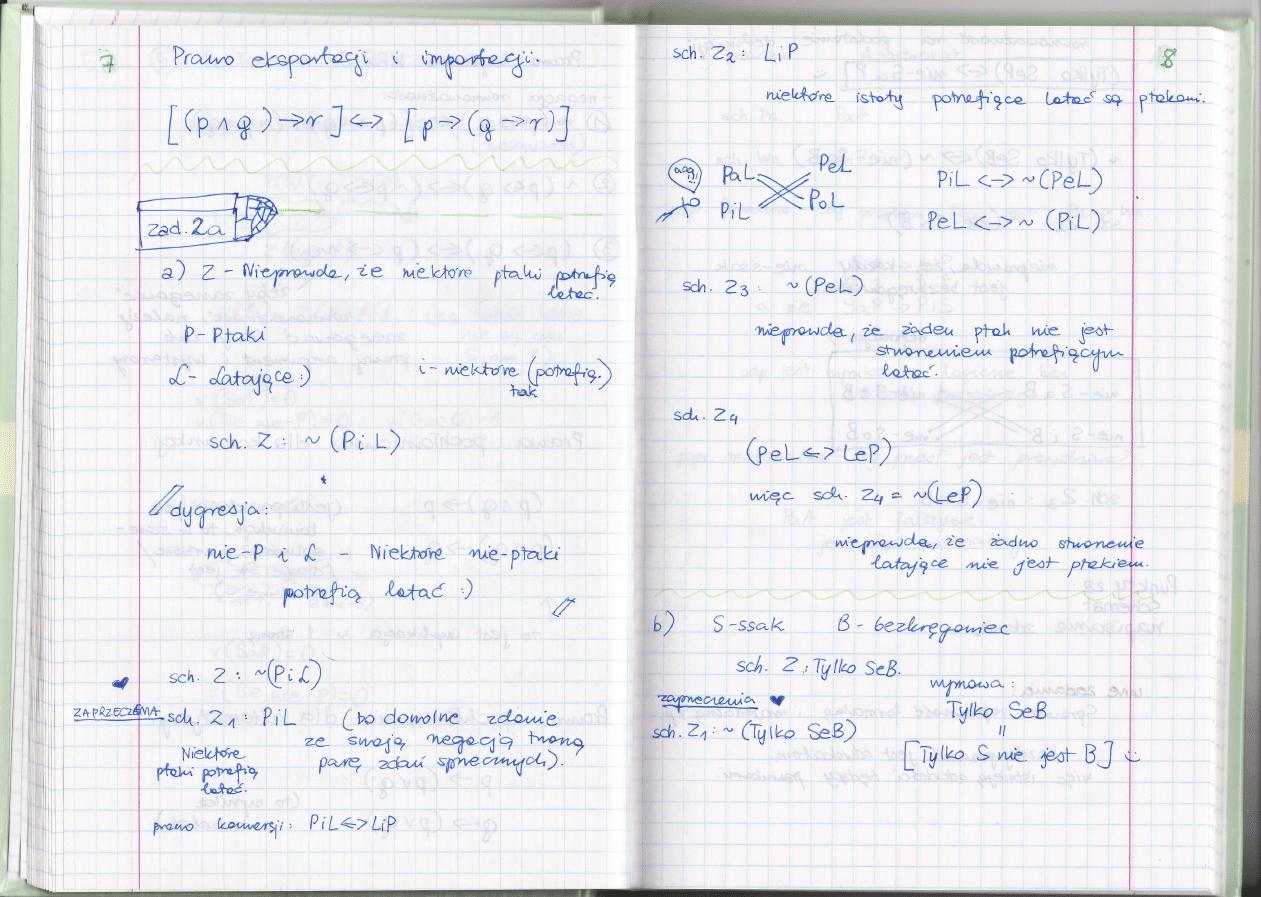 7
Prawo eksportacji i importacji.
[(p ∧ q) → r] <-> [p → (q → r)]
zad. 2a
a) Z - Nieprawda, że niektóre ptaki potrafią
latać.
P - Ptaki
L - Latające :) i - niektóre (potrafią.)
tak
sch. Z : ~ (PiL)
dygresja:
nie-P i L - Niektóre nie-ptaki
potrafią latać :)
sch. Z : ~(PiL)
ZAPRZECZENIA sch. Z1 : PiL (bo dowolne zdanie
ze swoją negacją tworzą
parę zdań sprzecznych).
Niektóre
ptaki potrafią
latać.
prawo konwersji: PiL <=> LiP
8
sch. Z2 : LiP
niektóre istoty potrafiące latać są ptakami.
PaL PeL
PiL PoL
PiL <-> ~(PeL)
PeL <-> ~ (PiL)
sch. Z3 : ~ (PeL)
nieprawda, że żaden ptak nie jest
stworzeniem potrafiącym
latać.
sch. Z4
(PeL <=> LeP)
więc sch. Z4 = ~(LeP)
nieprawda, że żadno stworzenie
latające nie jest ptakiem.
b) S-ssak B - bezkręgowiec
sch. Z : Tylko SeB.
zaprzeczenia
sch. Z1 : ~ (Tylko SeB)
wymowa :
Tylko SeB
=
[Tylko S nie jest B] :)